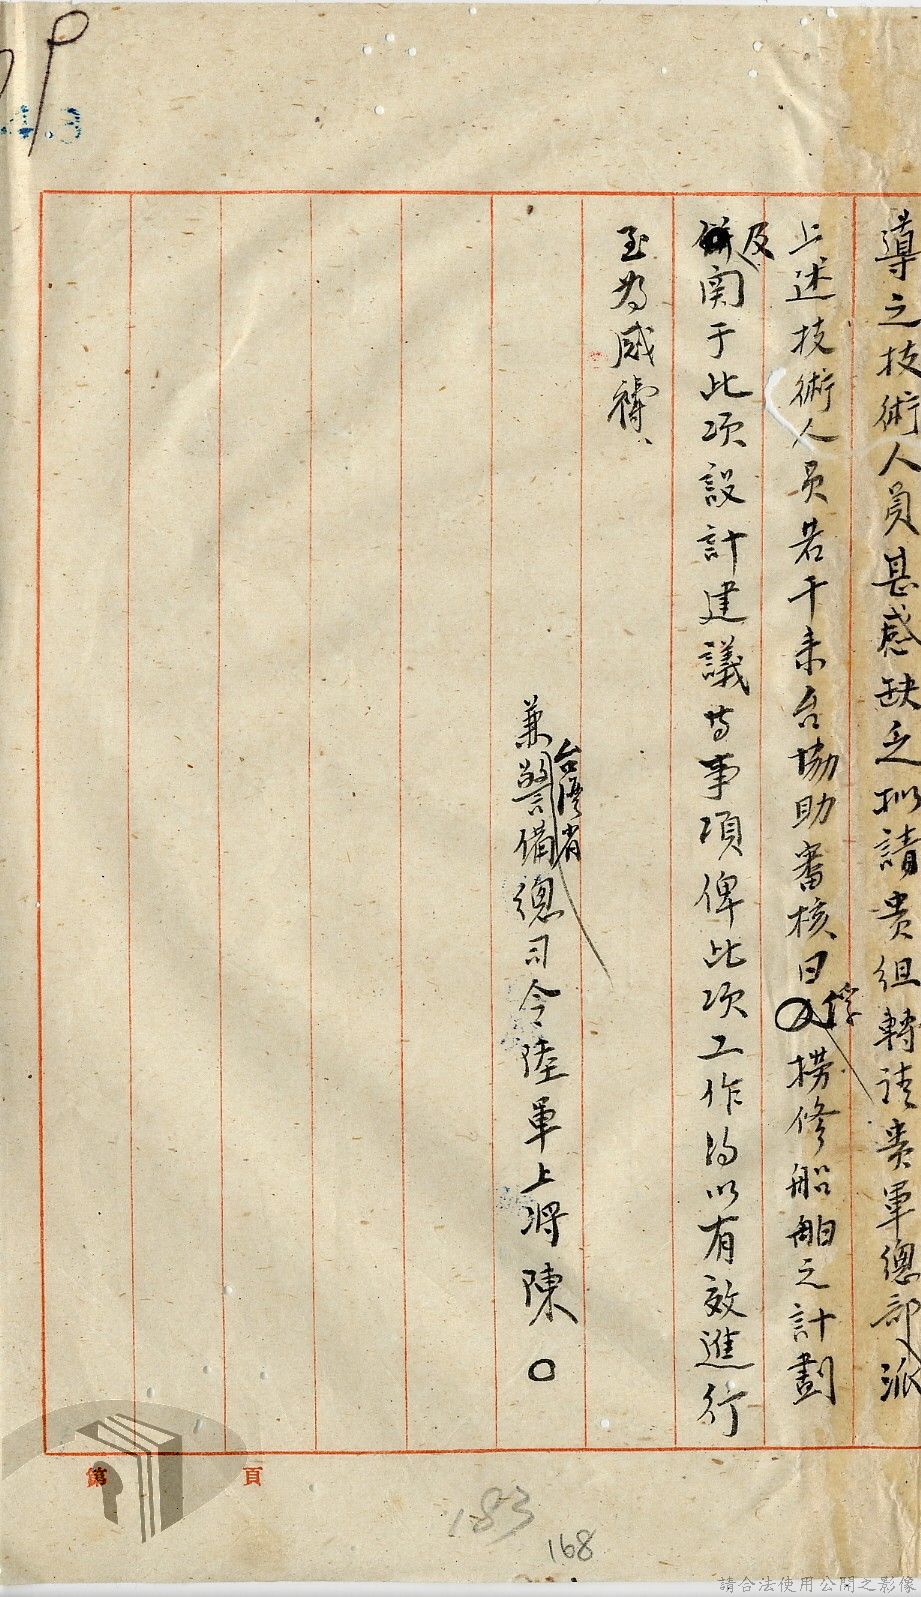 導之技術人員甚感缺乏拟請貴組轉請貴軍總部派
上述技術人员若干來台協助審核日俘撈修船舶之計劃
及関于此项設計建議等事項俾此项工作得以有效進行
至为感禱、
兼台灣省警備總司令陸軍上將陳〇
第 頁
183
168
4.3
請合法使用公開之影像